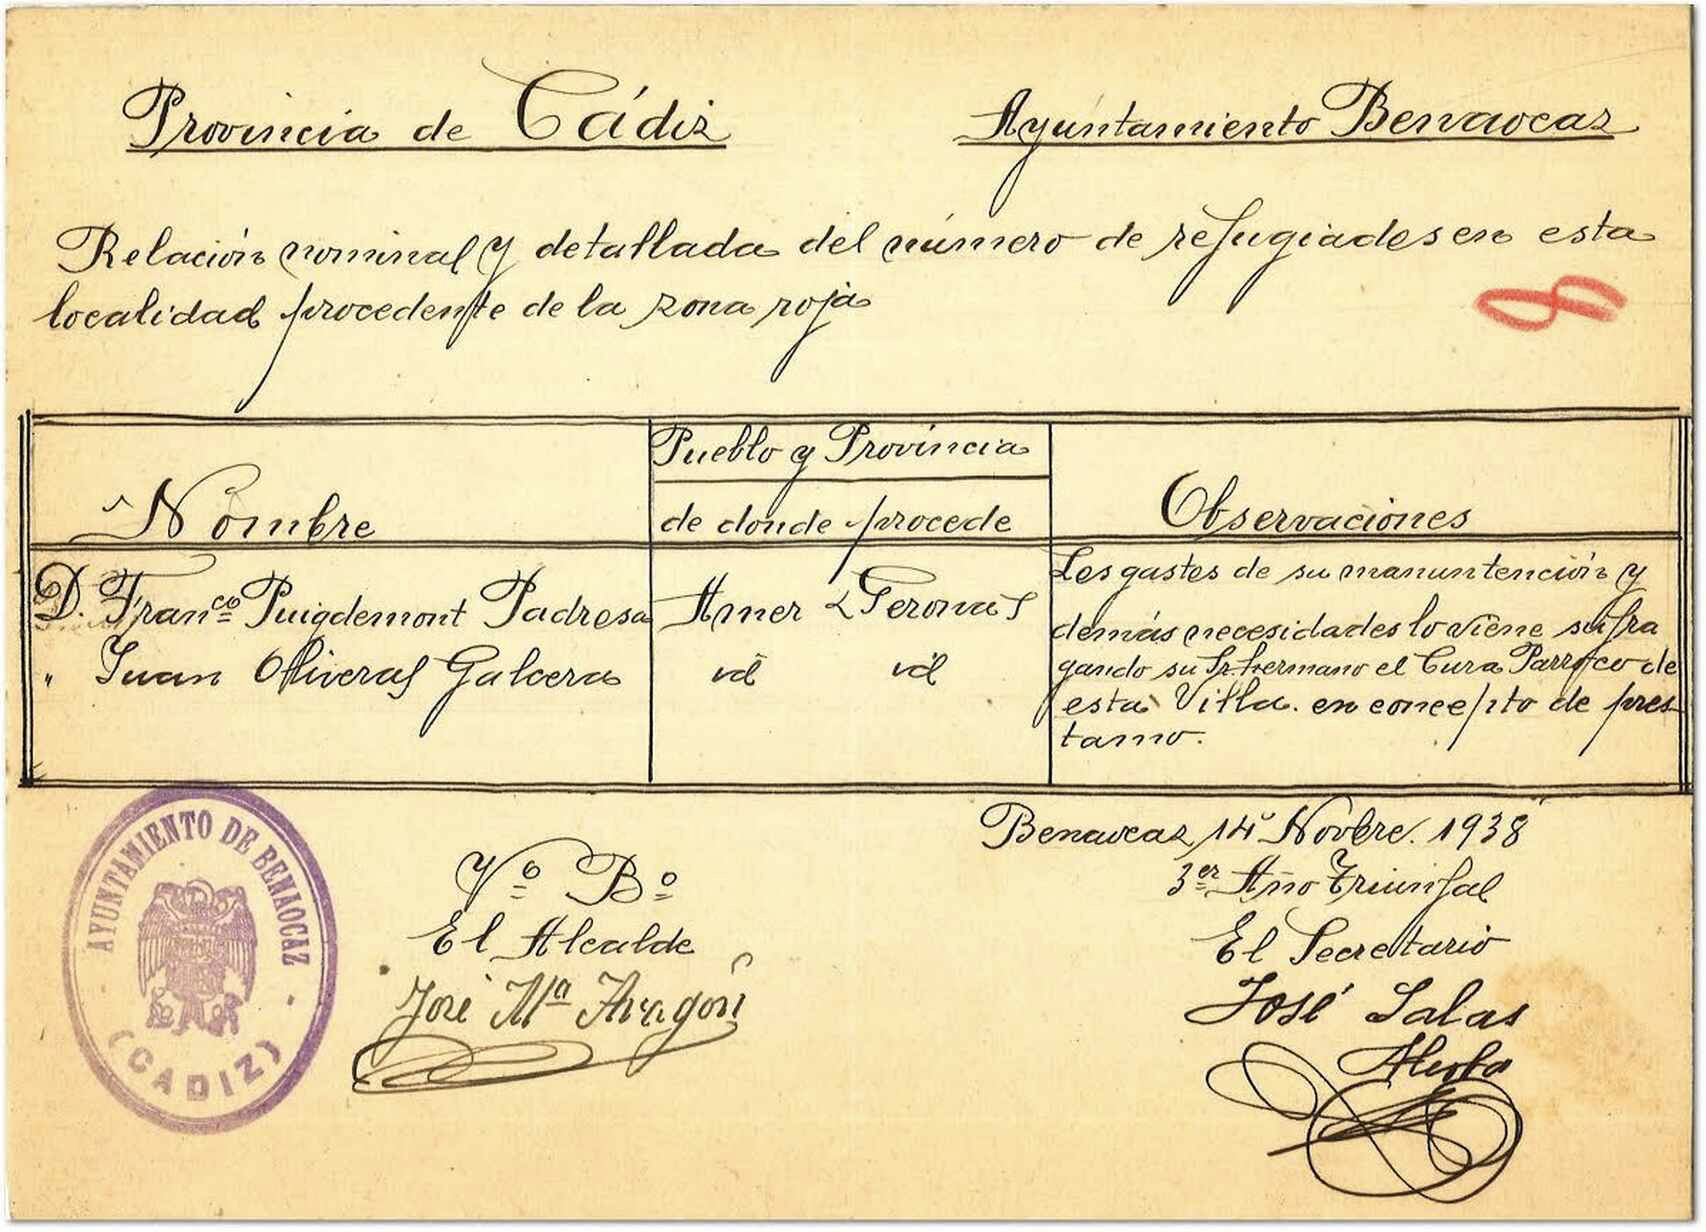 Provincia de Cádiz
Ayuntamiento Benaocaz
Relación nominal y detallada del número de refugiados en esta
localidad procedente de la zona roja
8
Nombre
Pueblo y Provincia
de donde procede
Observaciones
D. Franco Puigdemont Padresa
Amer (Gerona)
" Juan Oliveras Galcera
id id
Los gastos de su manuntención y
demás necesidades lo viene sufra
gando su Sr. hermano el Cura Parroco de
esta Villa. en concepto de pres
tamo.
Benaocaz 14 Novbre. 1938
3er Año Triunfal
Vº Bº
El Alcalde
José Mª Aragón
El Secretario
José Salas
AYUNTAMIENTO DE BENAOCAZ
(CADIZ)